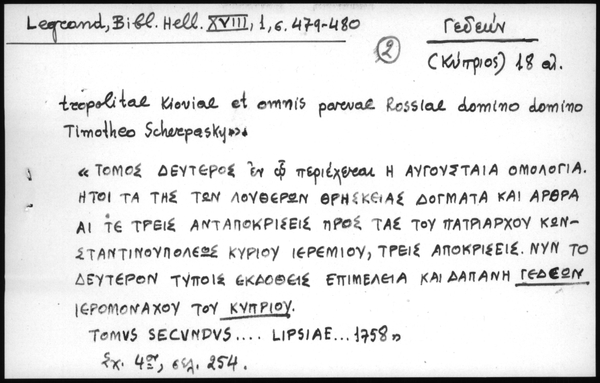 Legrand, Bibl. Hell. XVIII, 1, σ. 479-480
Γεδεών
2
(Κύπριος) 18 αἰ.
tropolitae Kioviae et omnis parvae Rossiae domino domino
Timotheo Scherpasky».
« ΤΟΜΟΣ ΔΕΥΤΕΡΟΣ ἐν ᾧ περιέχεται Η ΑΥΓΟΥΣΤΑΙΑ ΟΜΟΛΟΓΙΑ.
ΗΤΟΙ ΤΑ ΤΗΣ ΤΩΝ ΛΟΥΘΕΡΩΝ ΘΡΗΣΚΕΙΑΣ ΔΟΓΜΑΤΑ ΚΑΙ ΑΡΘΡΑ
ΑΙ ΤΕ ΤΡΕΙΣ ΑΝΤΑΠΟΚΡΙΣΕΙΣ ΠΡΟΣ ΤΑΣ ΤΟΥ ΠΑΤΡΙΑΡΧΟΥ ΚΩΝ-
ΣΤΑΝΤΙΝΟΥΠΟΛΕΩΣ ΚΥΡΙΟΥ ΙΕΡΕΜΙΟΥ, ΤΡΕΙΣ ΑΠΟΚΡΙΣΕΙΣ. ΝΥΝ ΤΟ
ΔΕΥΤΕΡΟΝ ΤΥΠΟΙΣ ΕΚΔΟΘΕΙΣ ΕΠΙΜΕΛΕΙΑ ΚΑΙ ΔΑΠΑΝΗ ΓΕΔΕΩΝ
ΙΕΡΟΜΟΝΑΧΟΥ ΤΟΥ ΚΥΠΡΙΟΥ.
TOMVS SECVNDVS .... LIPSIAE... 1758»
Σχ. 4ον, σελ. 254.